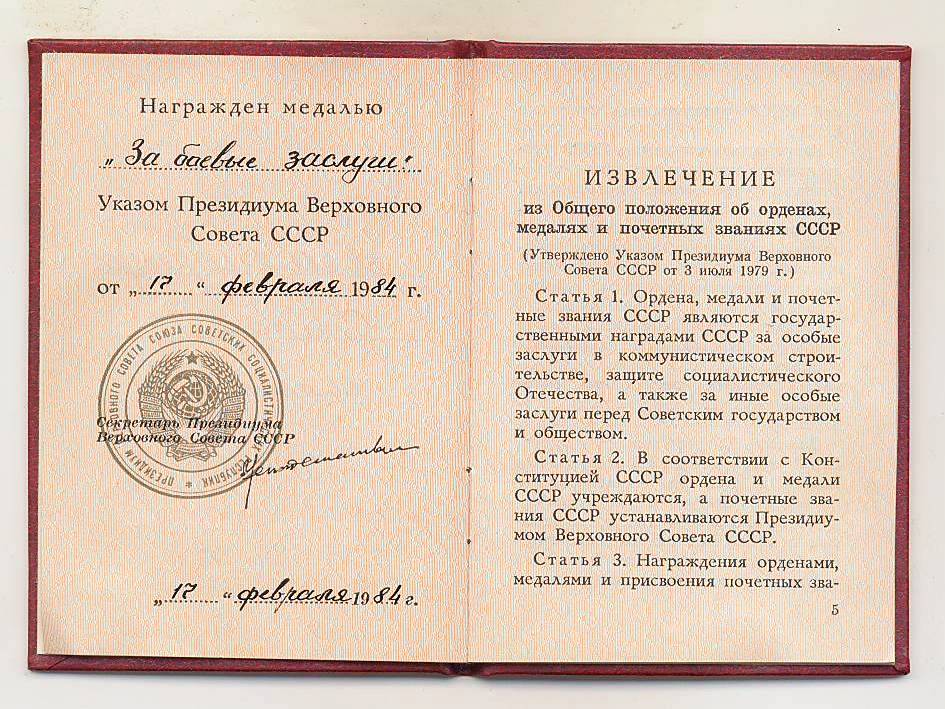 Награжден медалью
„За боевые заслуги"
Указом Президиума Верховного
Совета СССР
от „17" февраля 1984 г.
ПРЕЗИДИУМ ВЕРХОВНОГО СОВЕТА СОЮЗА СОВЕТСКИХ СОЦИАЛИСТИЧЕСКИХ РЕСПУБЛИК
Секретарь Президиума
Верховного Совета СССР
„17" февраля 1984 г.
ИЗВЛЕЧЕНИЕ
из Общего положения об орденах,
медалях и почетных званиях СССР
(Утверждено Указом Президиума Верховного
Совета СССР от 3 июля 1979 г.)
Статья 1. Ордена, медали и почет-
ные звания СССР являются государ-
ственными наградами СССР за особые
заслуги в коммунистическом строи-
тельстве, защите социалистического
Отечества, а также за иные особые
заслуги перед Советским государством
и обществом.
Статья 2. В соответствии с Кон-
ституцией СССР ордена и медали
СССР учреждаются, а почетные зва-
ния СССР устанавливаются Президиу-
мом Верховного Совета СССР.
Статья 3. Награждения орденами,
медалями и присвоения почетных зва-
5